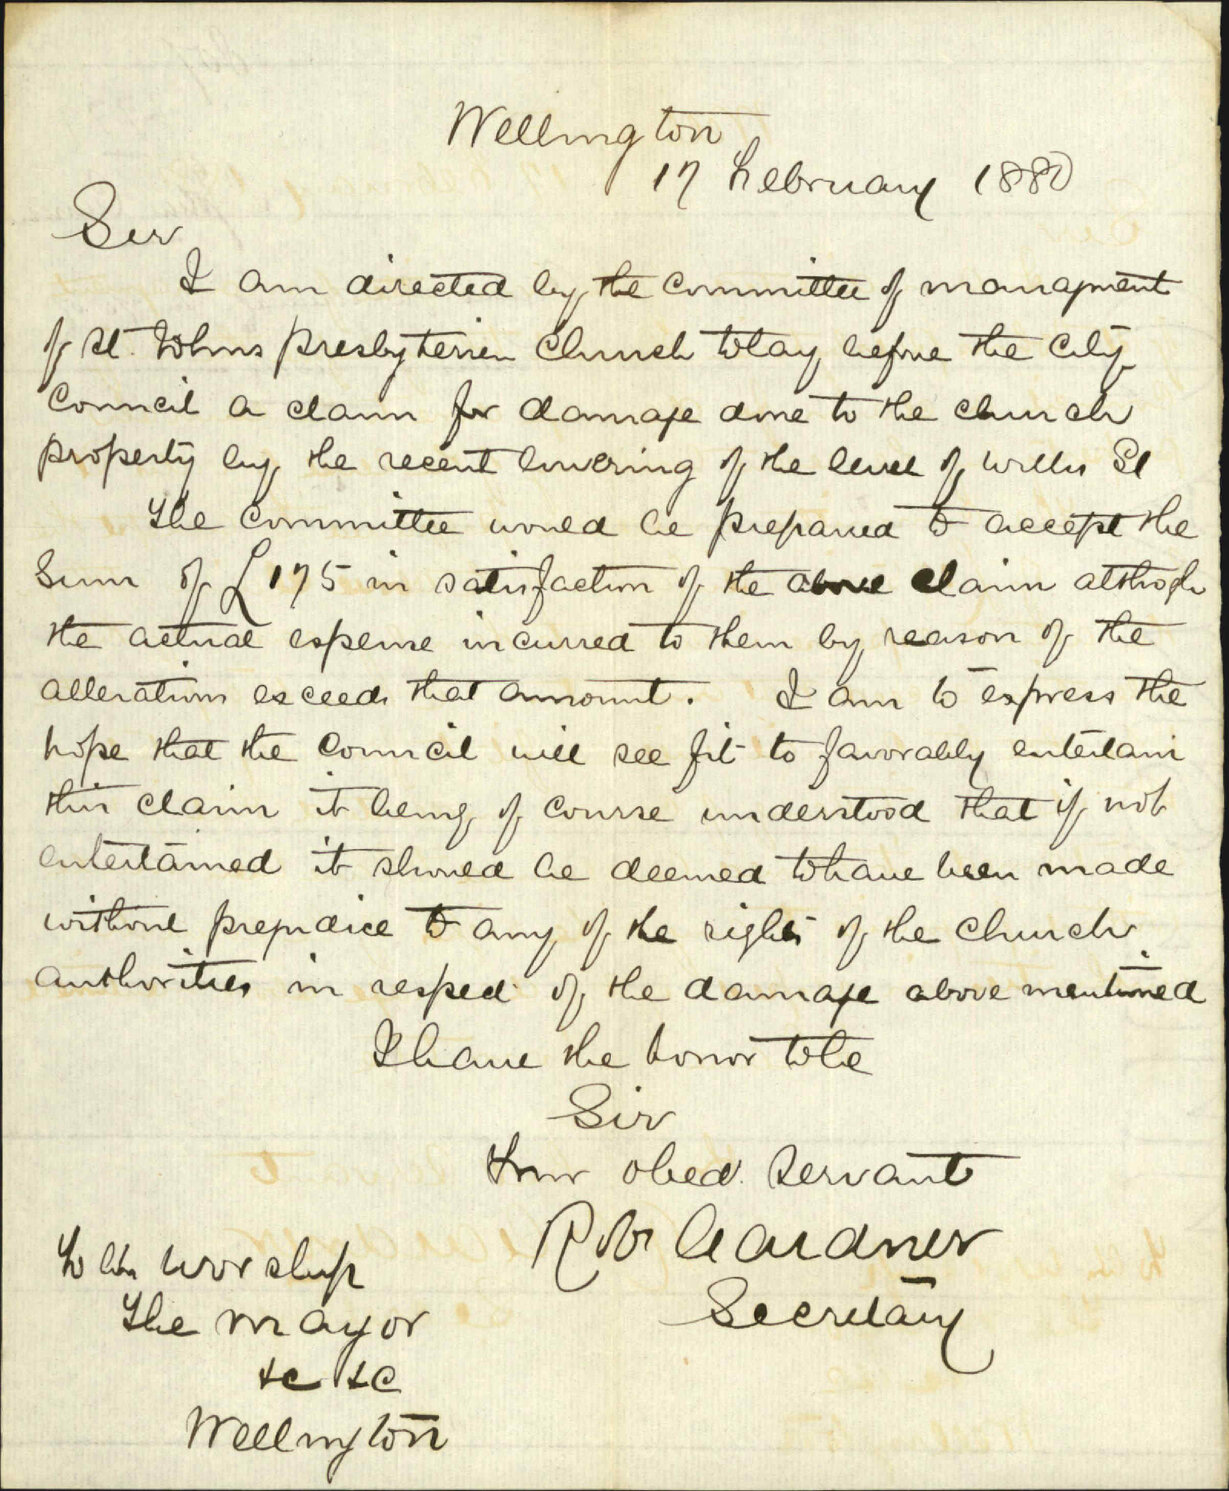 Wellington
17 February 1880
Sir
I am directed by the Committee of managment
of St. Johns Presbyterien Church to lay before the City
Council a claim for damage done to the church
property by the recent lowering of the level of Willis St
The Committee would be prepared to accept the
Sum of £175 in satisfaction of the above claim althogh
the actual expense incurred to them by reason of the
alterations exceeds that amount. I am to express the
hope that the Council will see fit to favorably entertain
this claim it being of course understood that if not
entertained it should be deemed to have been made
without prejudice to any of the rights of the church
authorities in respect of the damage above mentioned
I have the honor to be
Sir
Your obed. servant
Robt Gardner
Secretary
To his worship
The Mayor
&c &c
Wellington